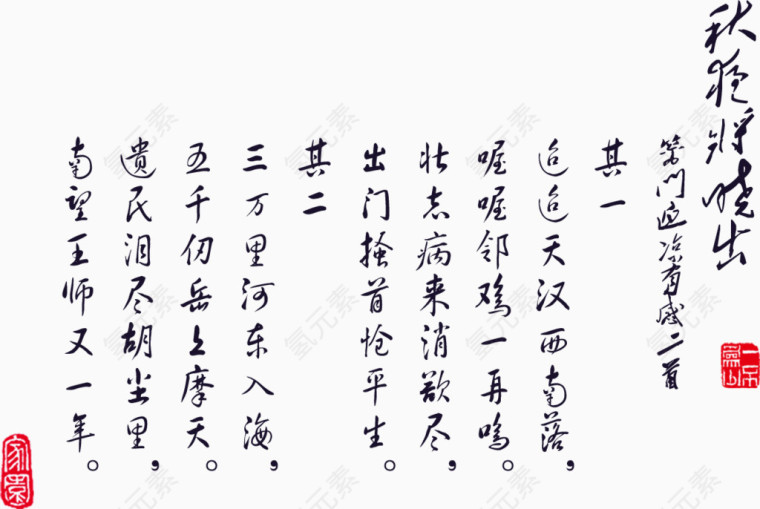 秋夜将晓出
篱门迎凉有感二首
其一
迢迢天汉西南落，
喔喔邻鸡一再鸣。
壮志病来消欲尽，
出门搔首怆平生。
其二
三万里河东入海，
五千仞岳上摩天。
遗民泪尽胡尘里，
南望王师又一年。
家园
氢元素